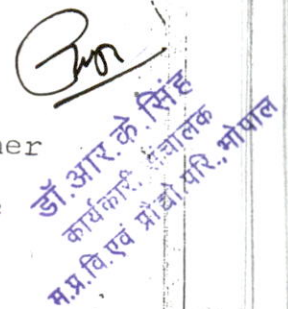 ner
डॉ. आर. के. सिंह
कार्यकारी संचालक
म.प्र.वि.एवं प्रौ.परि., भोपाल